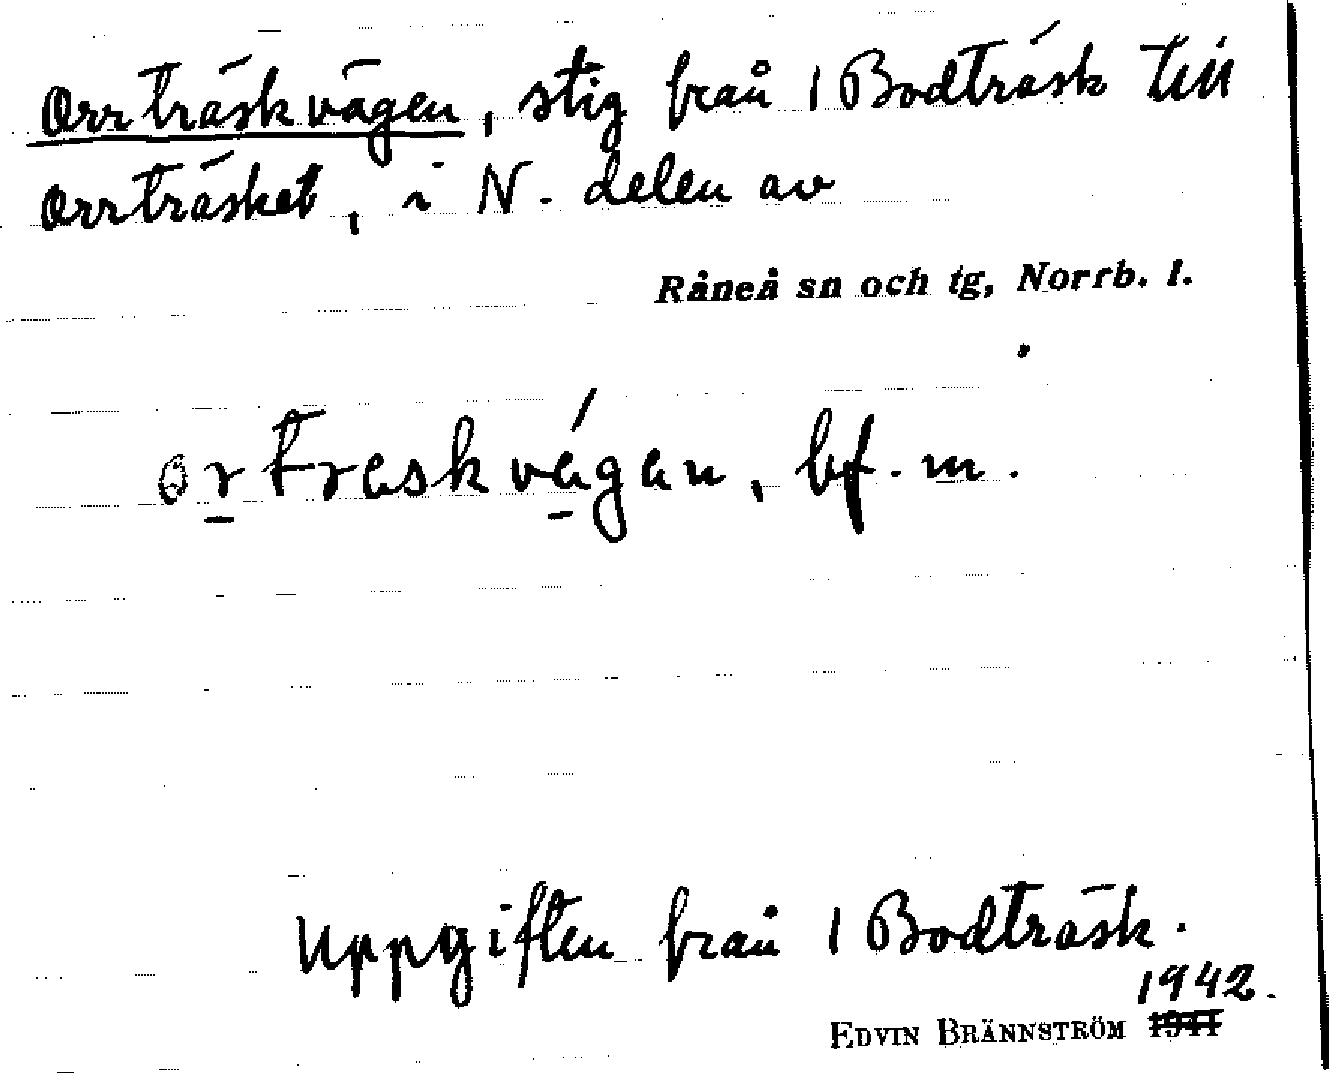 Orrträskvägen, stig från 1 Bodträsk till
Orrträsket, i N. delen av
Råneå sn och tg, Norrb. l.
ortreskvé̱gen, bf. m.
Uppgiften från 1 Bodträsk.
1942.
EDVIN BRÄNNSTRÖM 1941